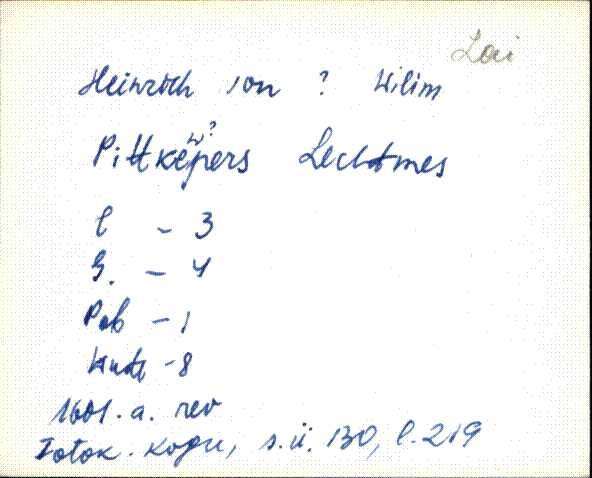 Lai
Heinrich von ? Wilim
w?
Pittkepers Lechtmes
l - 3
S. - 4
Pab - 1
- 8
1601. a. rev
Fotok. kogu, s.ü. 130, l. 219